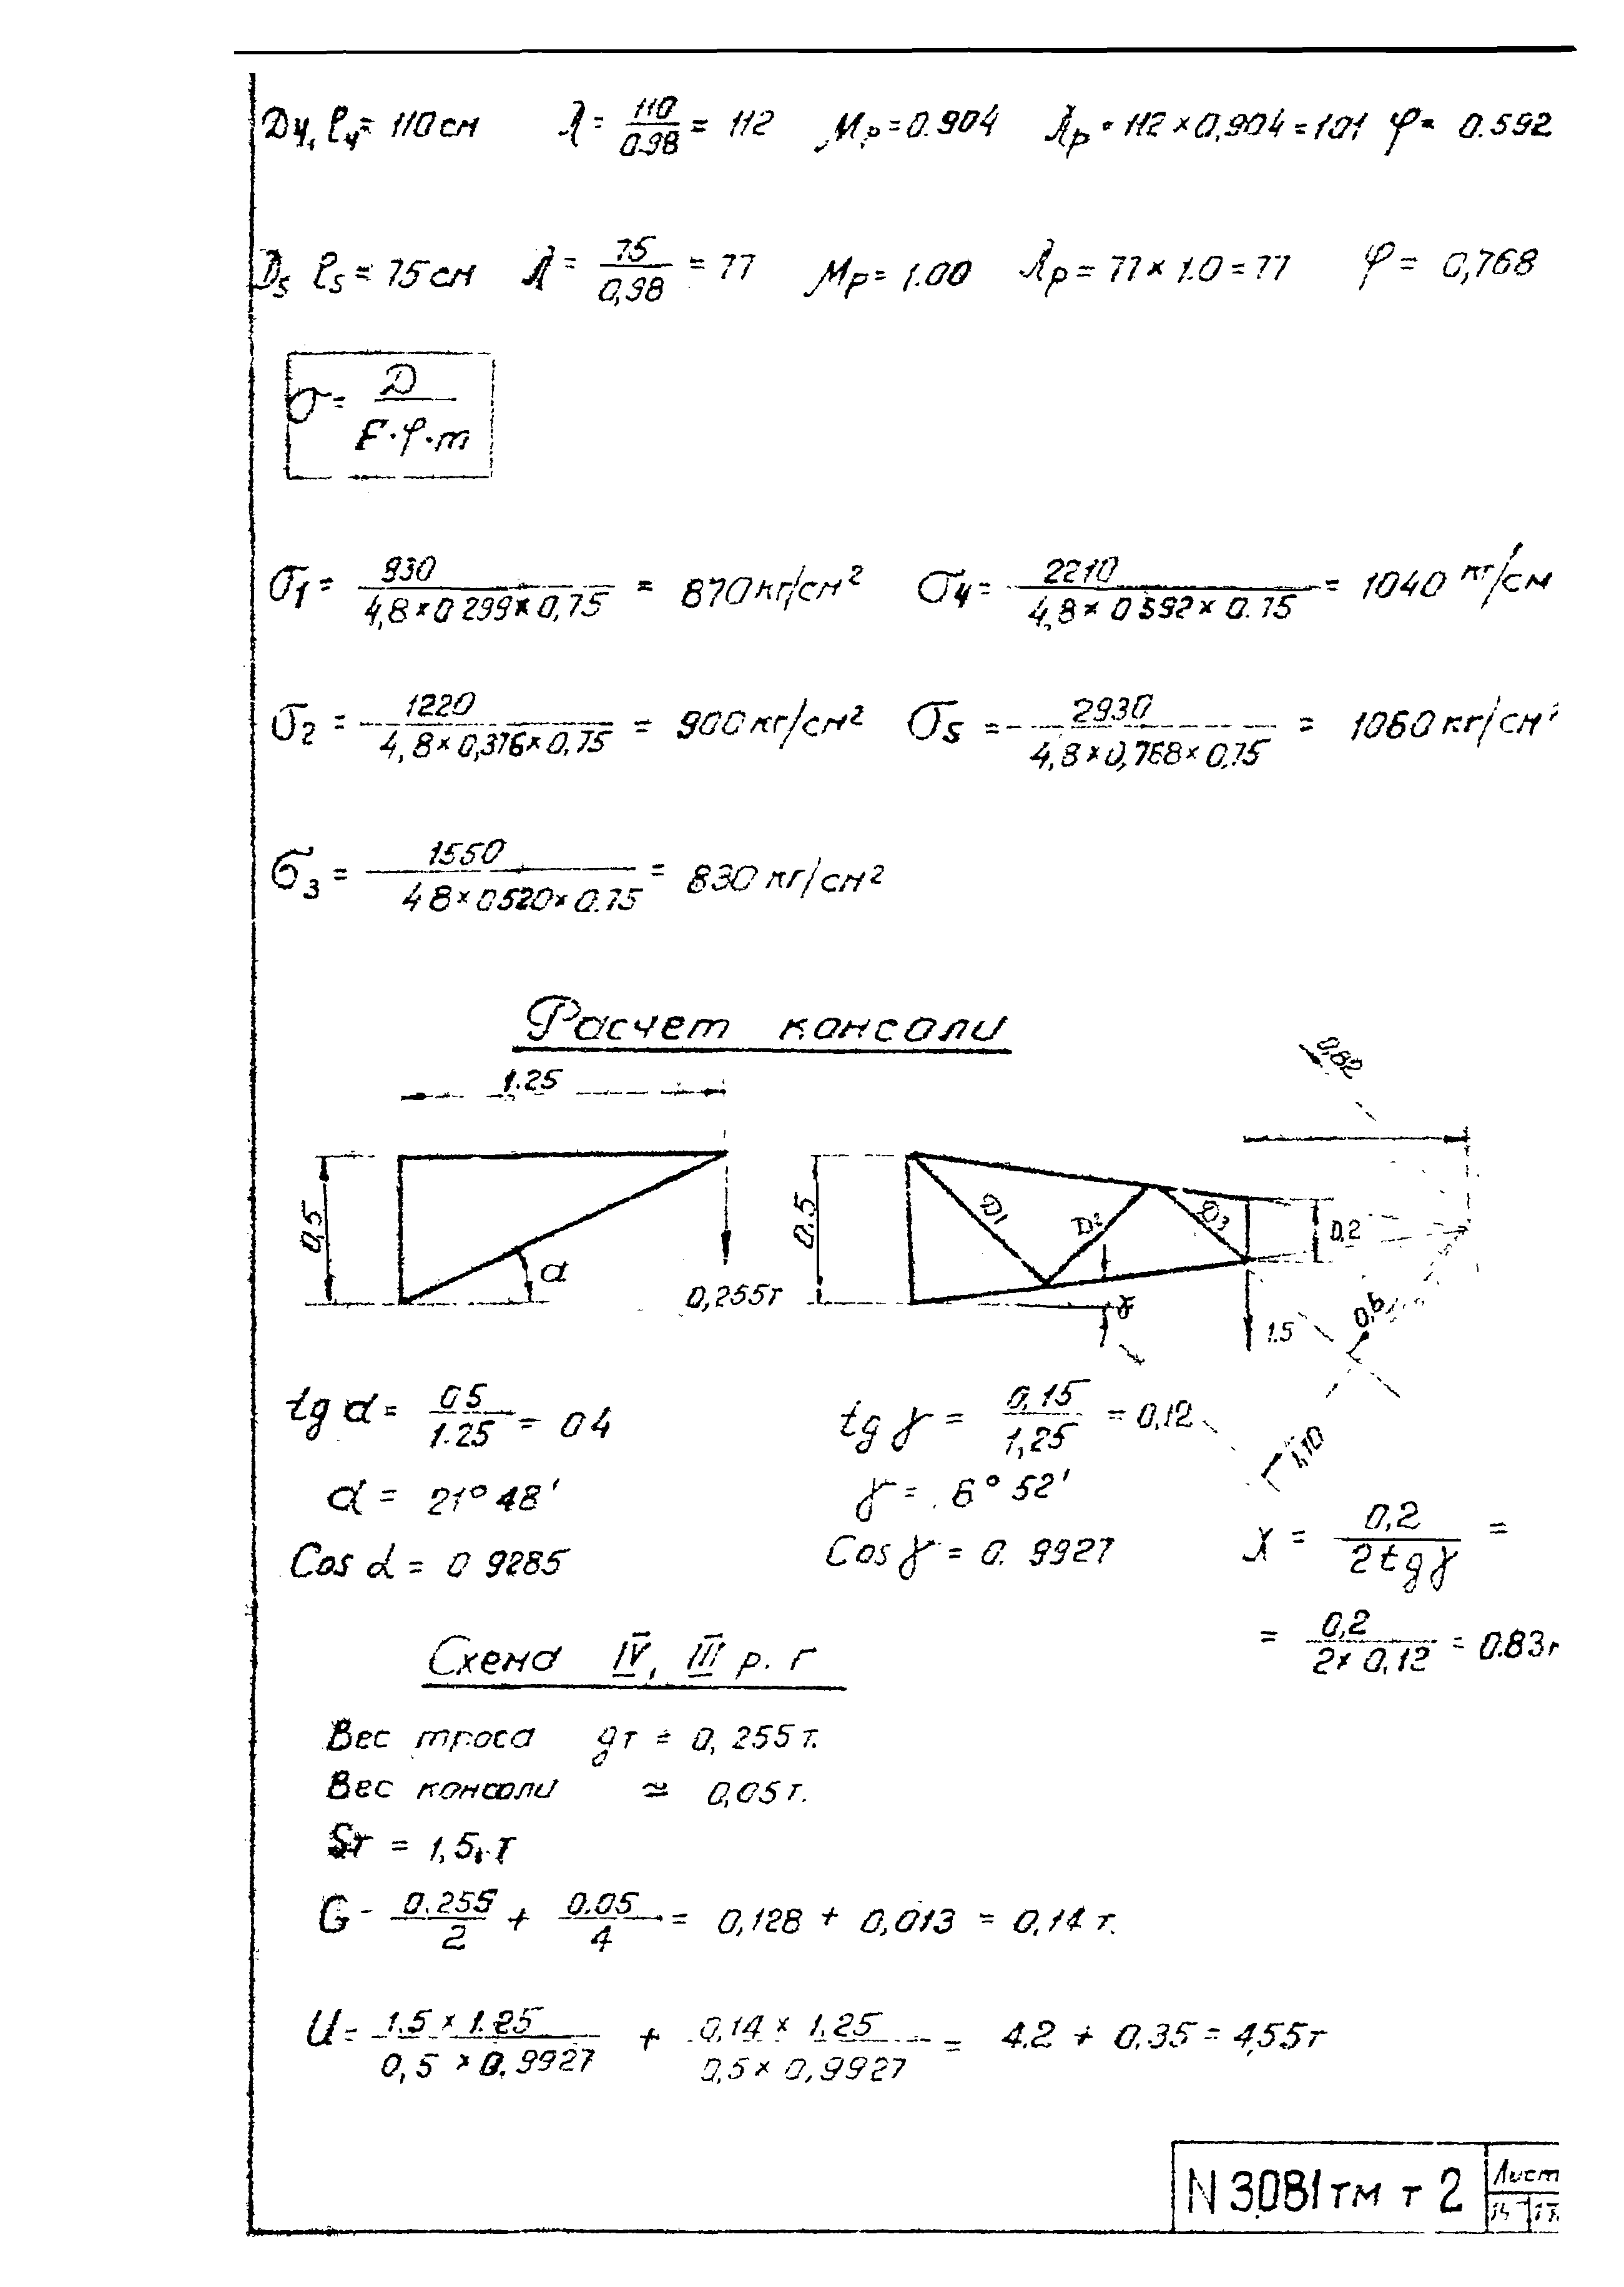 D4, ℓ4 = 110 см λ = 110/0.98 = 112 Mp = 0.904 λp = 112 × 0,904 = 101 φ = 0.592
D5 ℓ5 = 75 см λ = 75/0,98 = 77 Mp = 1.00 λp = 77 × 1.0 = 77 φ = 0,768
σ = D/F·φ·m
σ1 = 930/4,8×0 299×0,75 = 870 кг/см² σ4 = 2210/4,8×0 592×0.75 = 1040 кг/см
σ2 = 1220/4,8×0,376×0,75 = 900 кг/см² σ5 = 2930/4,8×0,768×0,75 = 1060 кг/см²
σ3 = 1550/4 8×0520×0.75 = 830 кг/см²
Расчет консали
1.25
0,82
0,5
α
0,255т
0.5
D1
D2
D3
γ
0,2
1.5
0,6
1,10
tg α = 0 5/1.25 = 0 4 tg γ = 0,15/1,25 = 0,12
α = 21° 48' γ = 6° 52'
Cos α = 0 9285 Cos γ = 0. 9927 x = 0,2/2 tg γ =
= 0,2/2×0,12 = 0.83м
Схема IV, III р. г
Вес троса gт = 0, 255 т.
Вес консоли ≈ 0,05 т.
Sт = 1,5 т
G - 0.255/2 + 0.05/4 = 0,128 + 0,013 = 0,14 т.
U = 1.5 × 1.25/0,5 × 0.9927 + 0,14 × 1,25/0,5 × 0,9927 = 4.2 + 0,35 = 4,55т
N 3081тм т 2 Лист